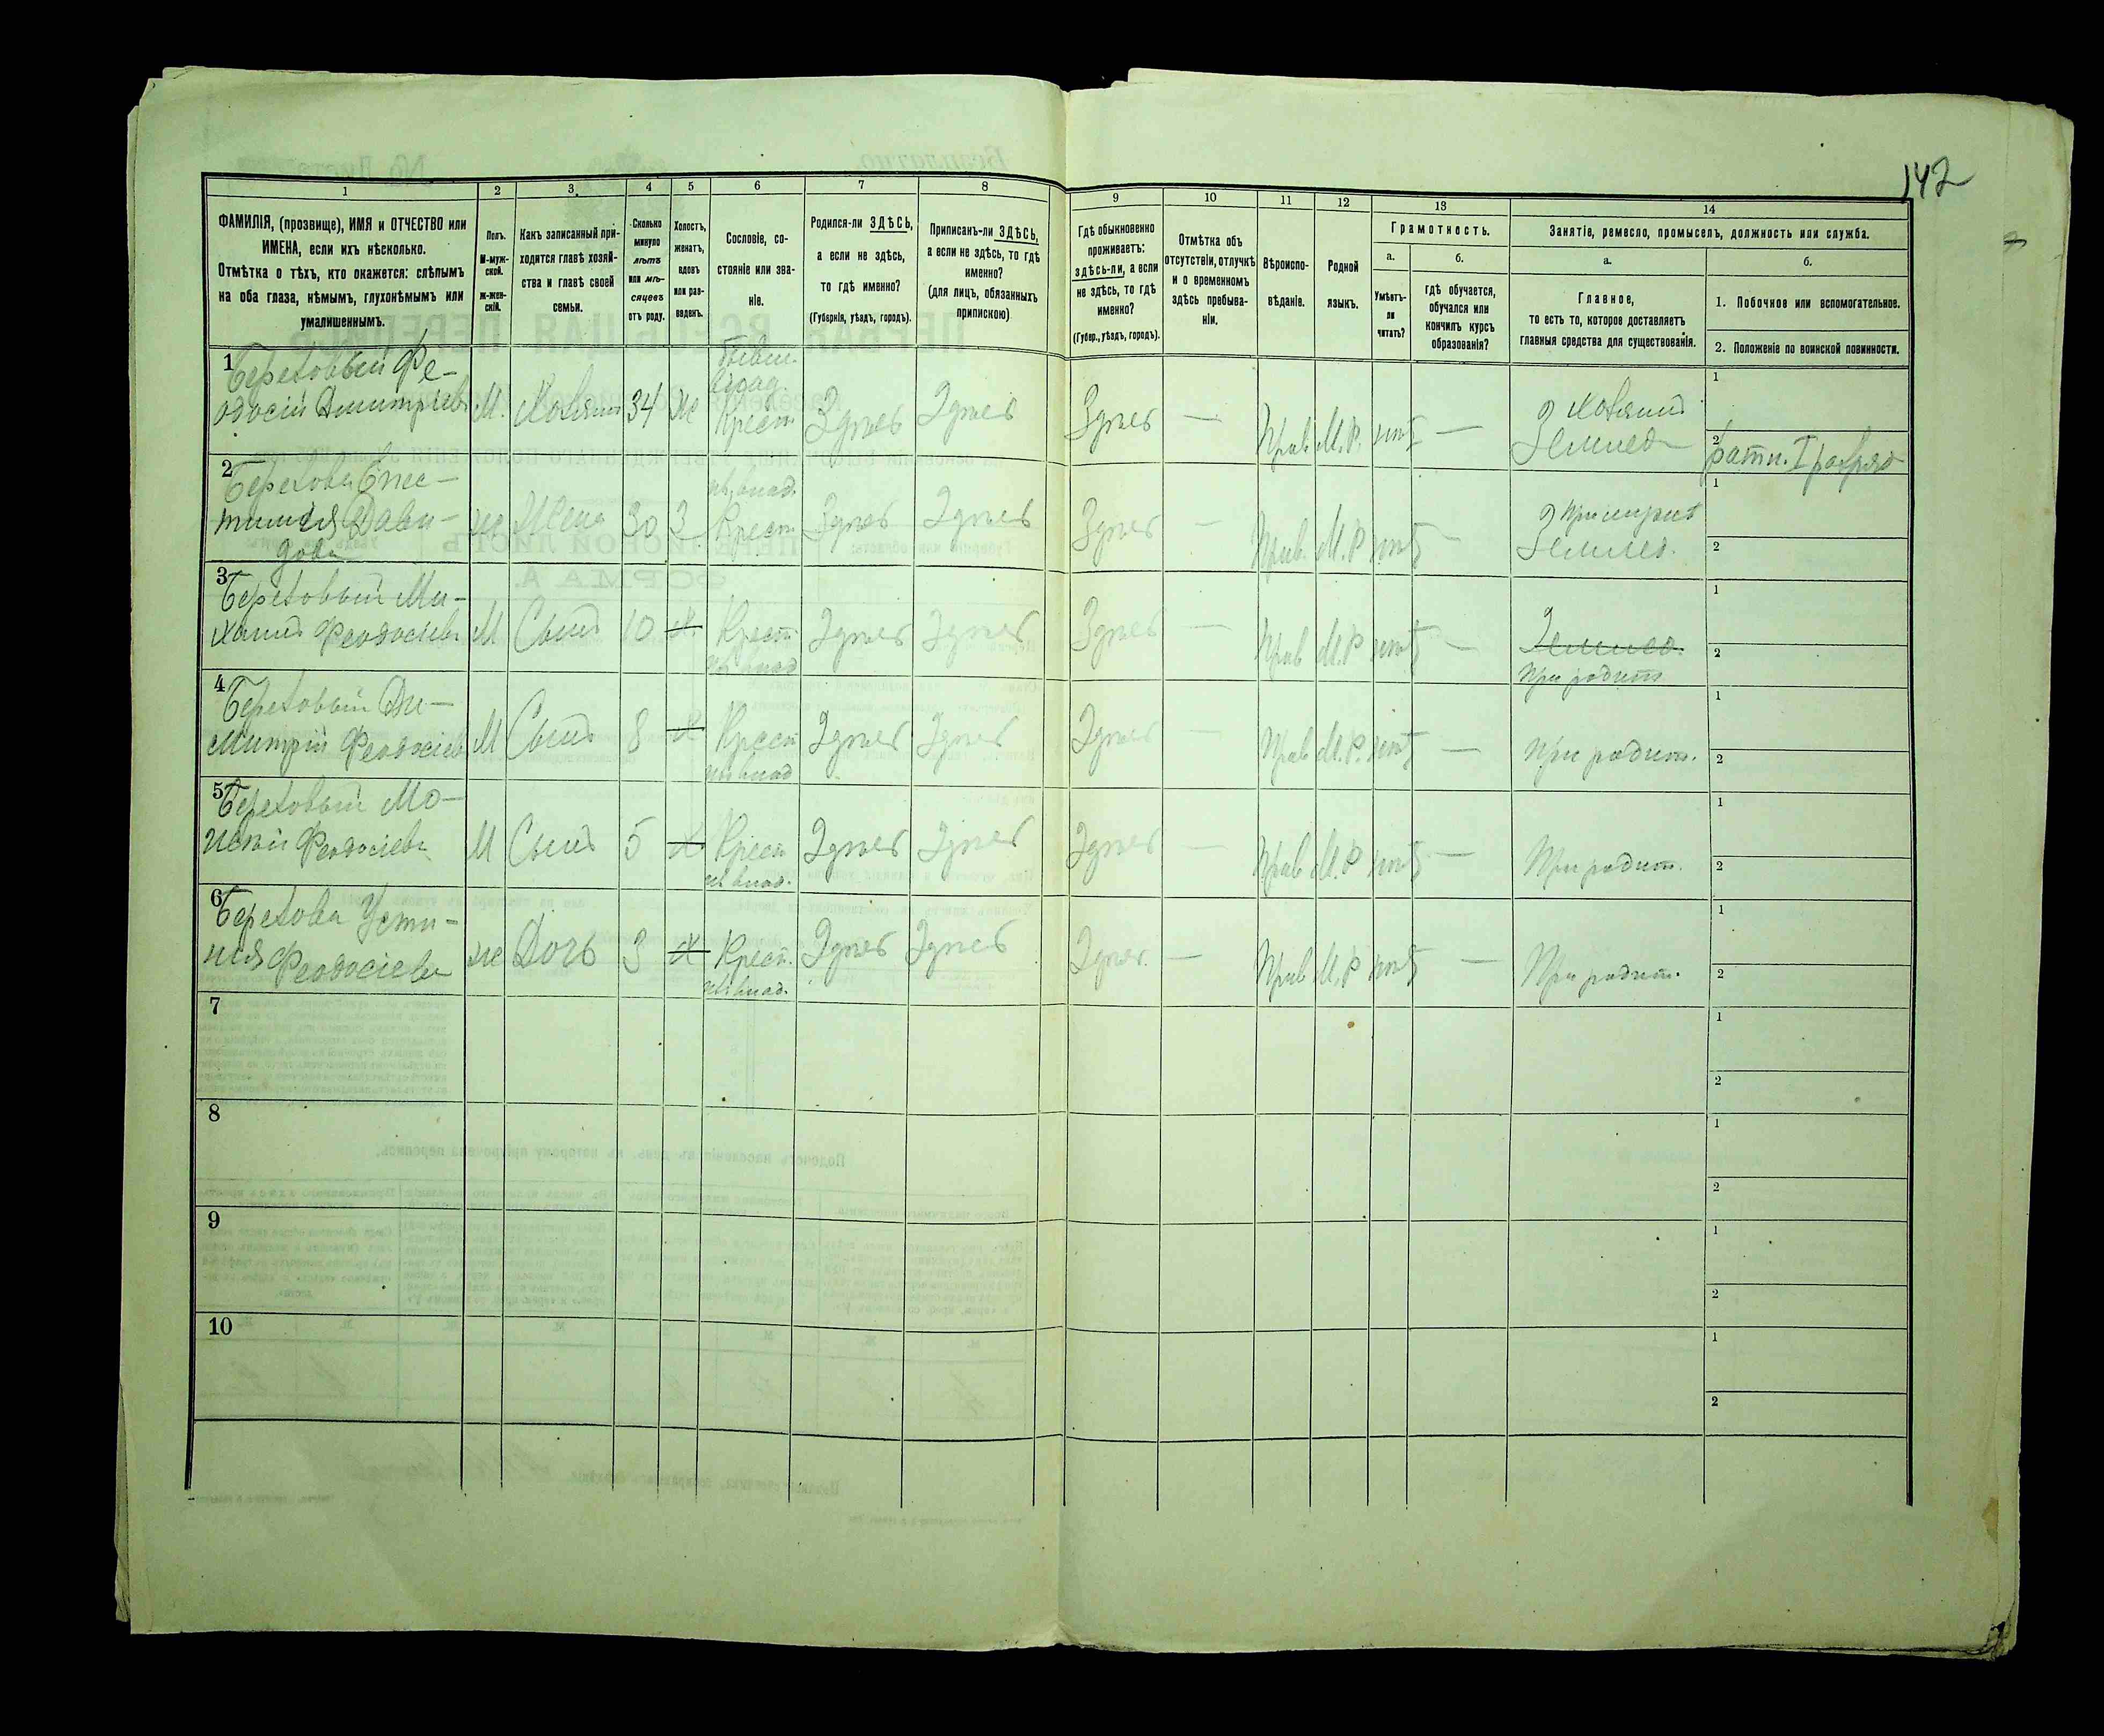 142
1 2 3. 4 5 6 7 8 9 10 11 12 13 14
ФАМИЛІЯ, (прозвище), ИМЯ и ОТЧЕСТВО или
ИМЕНА, если ихъ нѣсколько.
Отмѣтка о тѣхъ, кто окажется: слѣпымъ
на оба глаза, нѣмымъ, глухонѣмымъ или
умалишеннымъ.
Полъ.
М-муж-
ской.
Ж-жен-
скій.
Какъ записанный при-
ходится главѣ хозяй-
ства и главѣ своей
семьи.
Сколько
минуло
лѣтъ
или мѣ-
сяцевъ
отъ роду.
Холостъ,
женатъ,
вдовъ
или раз-
веденъ.
Сословіе, со-
стояніе или зва-
ніе.
Родился-ли ЗДѢСЬ,
а если не здѣсь,
то гдѣ именно?
(Губернія, уѣздъ, городъ).
Приписанъ-ли ЗДѢСЬ,
а если не здѣсь, то гдѣ
именно?
(для лицъ, обязанныхъ
припискою)
Гдѣ обыкновенно
проживаетъ:
здѣсь-ли, а если
не здѣсь, то гдѣ
именно?
(Губер., уѣздъ, городъ).
Отмѣтка объ
отсутствіи, отлучкѣ
и о временномъ
здѣсь пребыва-
ніи.
Вѣроиспо-
вѣданіе.
Родной
языкъ.
Грамотность.
а.
Умѣетъ-
ли
читать?
б.
гдѣ обучается,
обучался или
кончилъ курсъ
образованія?
Занятіе, ремесло, промыселъ, должность или служба.
а.
Главное,
то есть то, которое доставляетъ
главныя средства для существованія.
б.
1. Побочное или вспомогательное.
2. Положеніе по воинской повинности.
1
Береговый Фе-
одосій Дмитріевъ М. Хозяинъ 34 Ж Крест. Здѣсь Здѣсь Здѣсь — Прав. М.Р. нѣтъ — Хозяинъ
Землед. 1
2 ратн. I разряд
2
Берегова
Дави-
дова Ж Жена 30 З Крест. Здѣсь Здѣсь Здѣсь — Прав. М.Р. нѣтъ —
Землед. 1
2
3
Береговый Ми-
хаилъ Феодосіевъ М Сынъ 10 Х Крест. Здѣсь Здѣсь Здѣсь — Прав. М.Р. нѣтъ — Землед.
При родит. 1
2
4
Береговый Ди-
митрій Феодосіевъ М Сынъ 8 Х Крест. Здѣсь Здѣсь Здѣсь — Прав. М.Р. нѣтъ — При родит. 1
2
5
Береговый Мо-
исей Феодосіевъ М Сынъ 5 Х Крест. Здѣсь Здѣсь Здѣсь — Прав. М.Р. нѣтъ — При родит. 1
2
6
Берегова Усти-
нія Феодосіева Ж Дочь 3 Х Крест. Здѣсь Здѣсь Здѣсь — Прав. М.Р. нѣтъ — При родит. 1
2
7 1
2
8 1
2
9 1
2
10 1
2